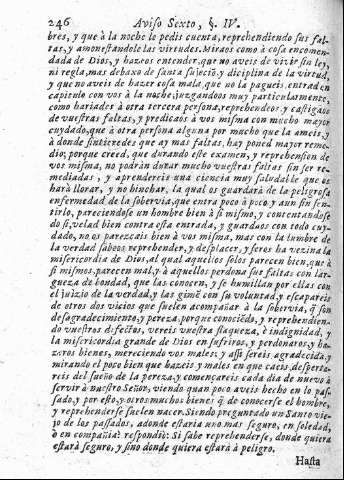 246 Aviso Sexto, §. IV.
bres, y que à la noche le pedis cuenta, reprehendiendo sus fal-
tas, y amonestandole las virtudes. Miraos como à cosa encomen-
dada de Dios, y hazeos entender, que no aveis de vivir sin ley,
ni regla, mas debaxo de santa sujeciõ, y diciplina de la virtud,
y que no aveis de hazer cosa mala, que no la pagueis, entrad en
capitulo con vos à la noche, juzgandoos muy particularmente,
como hariades à otra tercera persona, reprehendeos y castigaos
de vuestras faltas, y predicàos à vos misma con mucho mayor
cuydado, que à otra persona alguna por mucho que la ameis, y
à donde sintieredes que ay mas faltas, hay poned mayor reme-
dio; porque creed, que durando este examen, y reprehension de
vos misma, no podràn durar mucho vuestras faltas sin ser re-
mediadas, y aprendereis una ciencia muy saludable que os
harà llorar, y no hinchar, la qual os guardarà de la peligrosa
enfermedad de la sobervia, que entra poco à poco, y aun sin sen-
tirlo, pareciendose un hombre bien à si mismo, y contentandose
de si, velad bien contra esta entrada, y guardaos con todo cuy-
dado, no os parezcais bien à vos misma, mas con la lumbre de
la verdad sabeos reprehender, y desplacer, y seros ha vezina la
misericordia de Dios, al qual aquellos solos parecen bien, que à
si mismos parecen mal, y à aquellos perdona sus faltas con lar-
gueza de bondad, que las conocen, y se humillan por ellas con
el juizio de la verdad, y las gimẽ con su voluntad, y escapareis
de otros dos vicios que suelen acompañar à la sobervia, q̃ son
desagradecimiento, y pereza, porque conosciẽdo, y reprehendien-
do vuestros defectos, vereis vuestra flaqueza, è indignidad, y
la misericordia grande de Dios en sufriros, y perdonaros, y ha-
zeros bienes, mereciendo vos males, y assi sereis agradecida, y
mirando el poco bien que hazeis y males en que caeis, desperta-
reis del sueño de la pereza, y començareis cada dia de nuevo à
servir à nuestro Señor, viendo quan poco aveis hecho en lo pas-
sado, y por esto, y otros muchos bienes q̃ de conocerse el hombre,
y reprehenderse suelen nacer. Siendo preguntado un Santo vie-
jo de los passados, adonde estaria uno mas seguro, en soledad,
ò en compañia? respondiò: Si sabe reprehenderse, donde quiera
estarà seguro, y sino donde quiera estarà à peligro.
Hasta